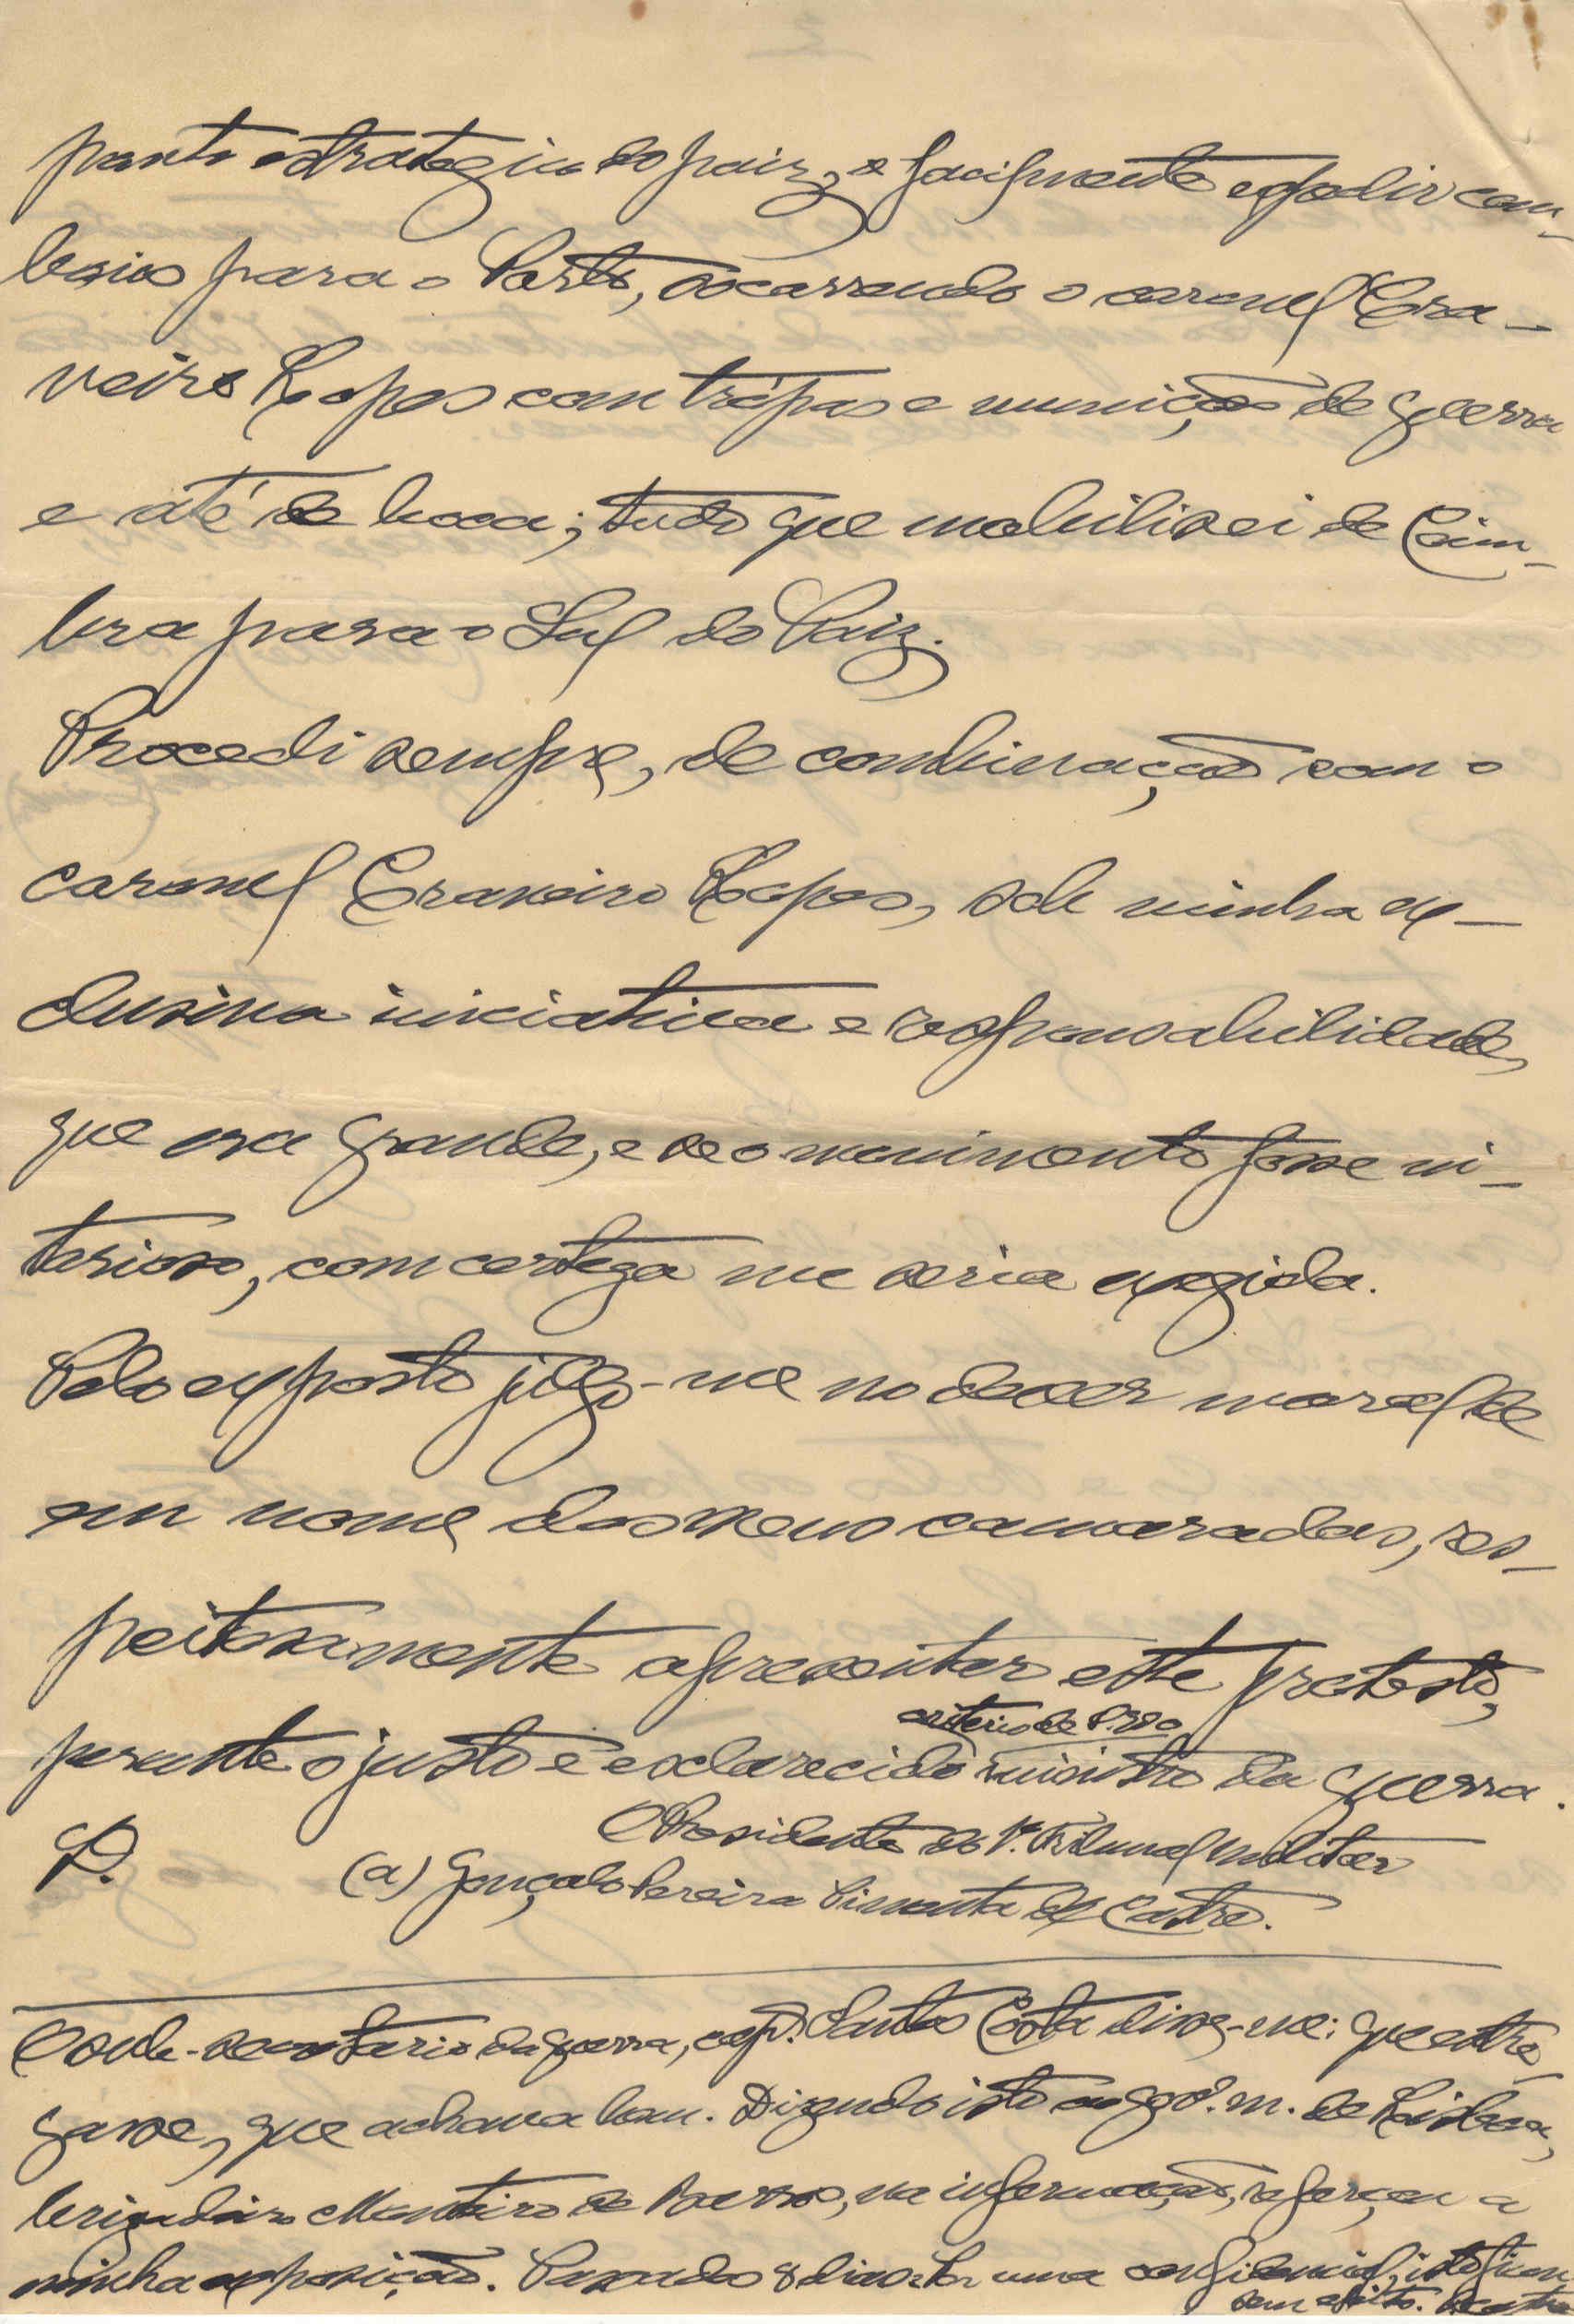 ponto estrategico do paiz, e facilmente expedir com-
boios para o Porto, socorrendo o coronel Cra-
veiro Lopes com trópas e munição de guerra
e até de boca; tudo que mobilisei de Coim-
bra para o Sul do Paiz.
Procedi sempre, de combinação com o
coronel Craveiro Lopes, sob minha ex-
clusiva iniciativa e responsabilidade,
que era grande, e se o movimento fosse vi-
torioso, com certeza me seria exegida.
Pelo exposto julgo-me no dever moral de
em nome dos meus camaradas, res-
peitosamente apresentar este protesto,
criterio de S. Exª o
perante o justo e esclarecido ministro da guerra.
O Presidente do 1º. Tribunal Militar
P. (a) Gonçalo Pereira Pimenta de Castro.
O sub-secretario da guerra, cap. Santos Costa disse-me: que entre-
gasse, que achava bem. Dizendo isto ao govº. m. de Lisboa,
brigadeiro Monteiro de Barros, na informação, reforçou a
minha exposição. Passados 8 dias uma confidencial, isto ficou
sem efeito.